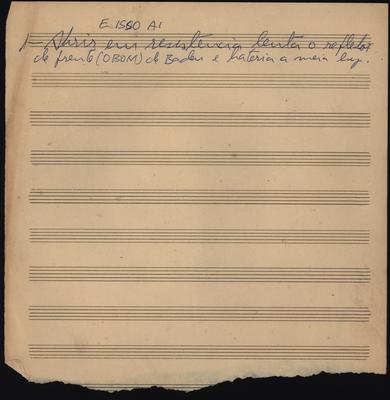 E ISSO AI
1- Abrir em resistencia lenta o refletor
de frente (O BOM) de Baden e bateria a meia luz.